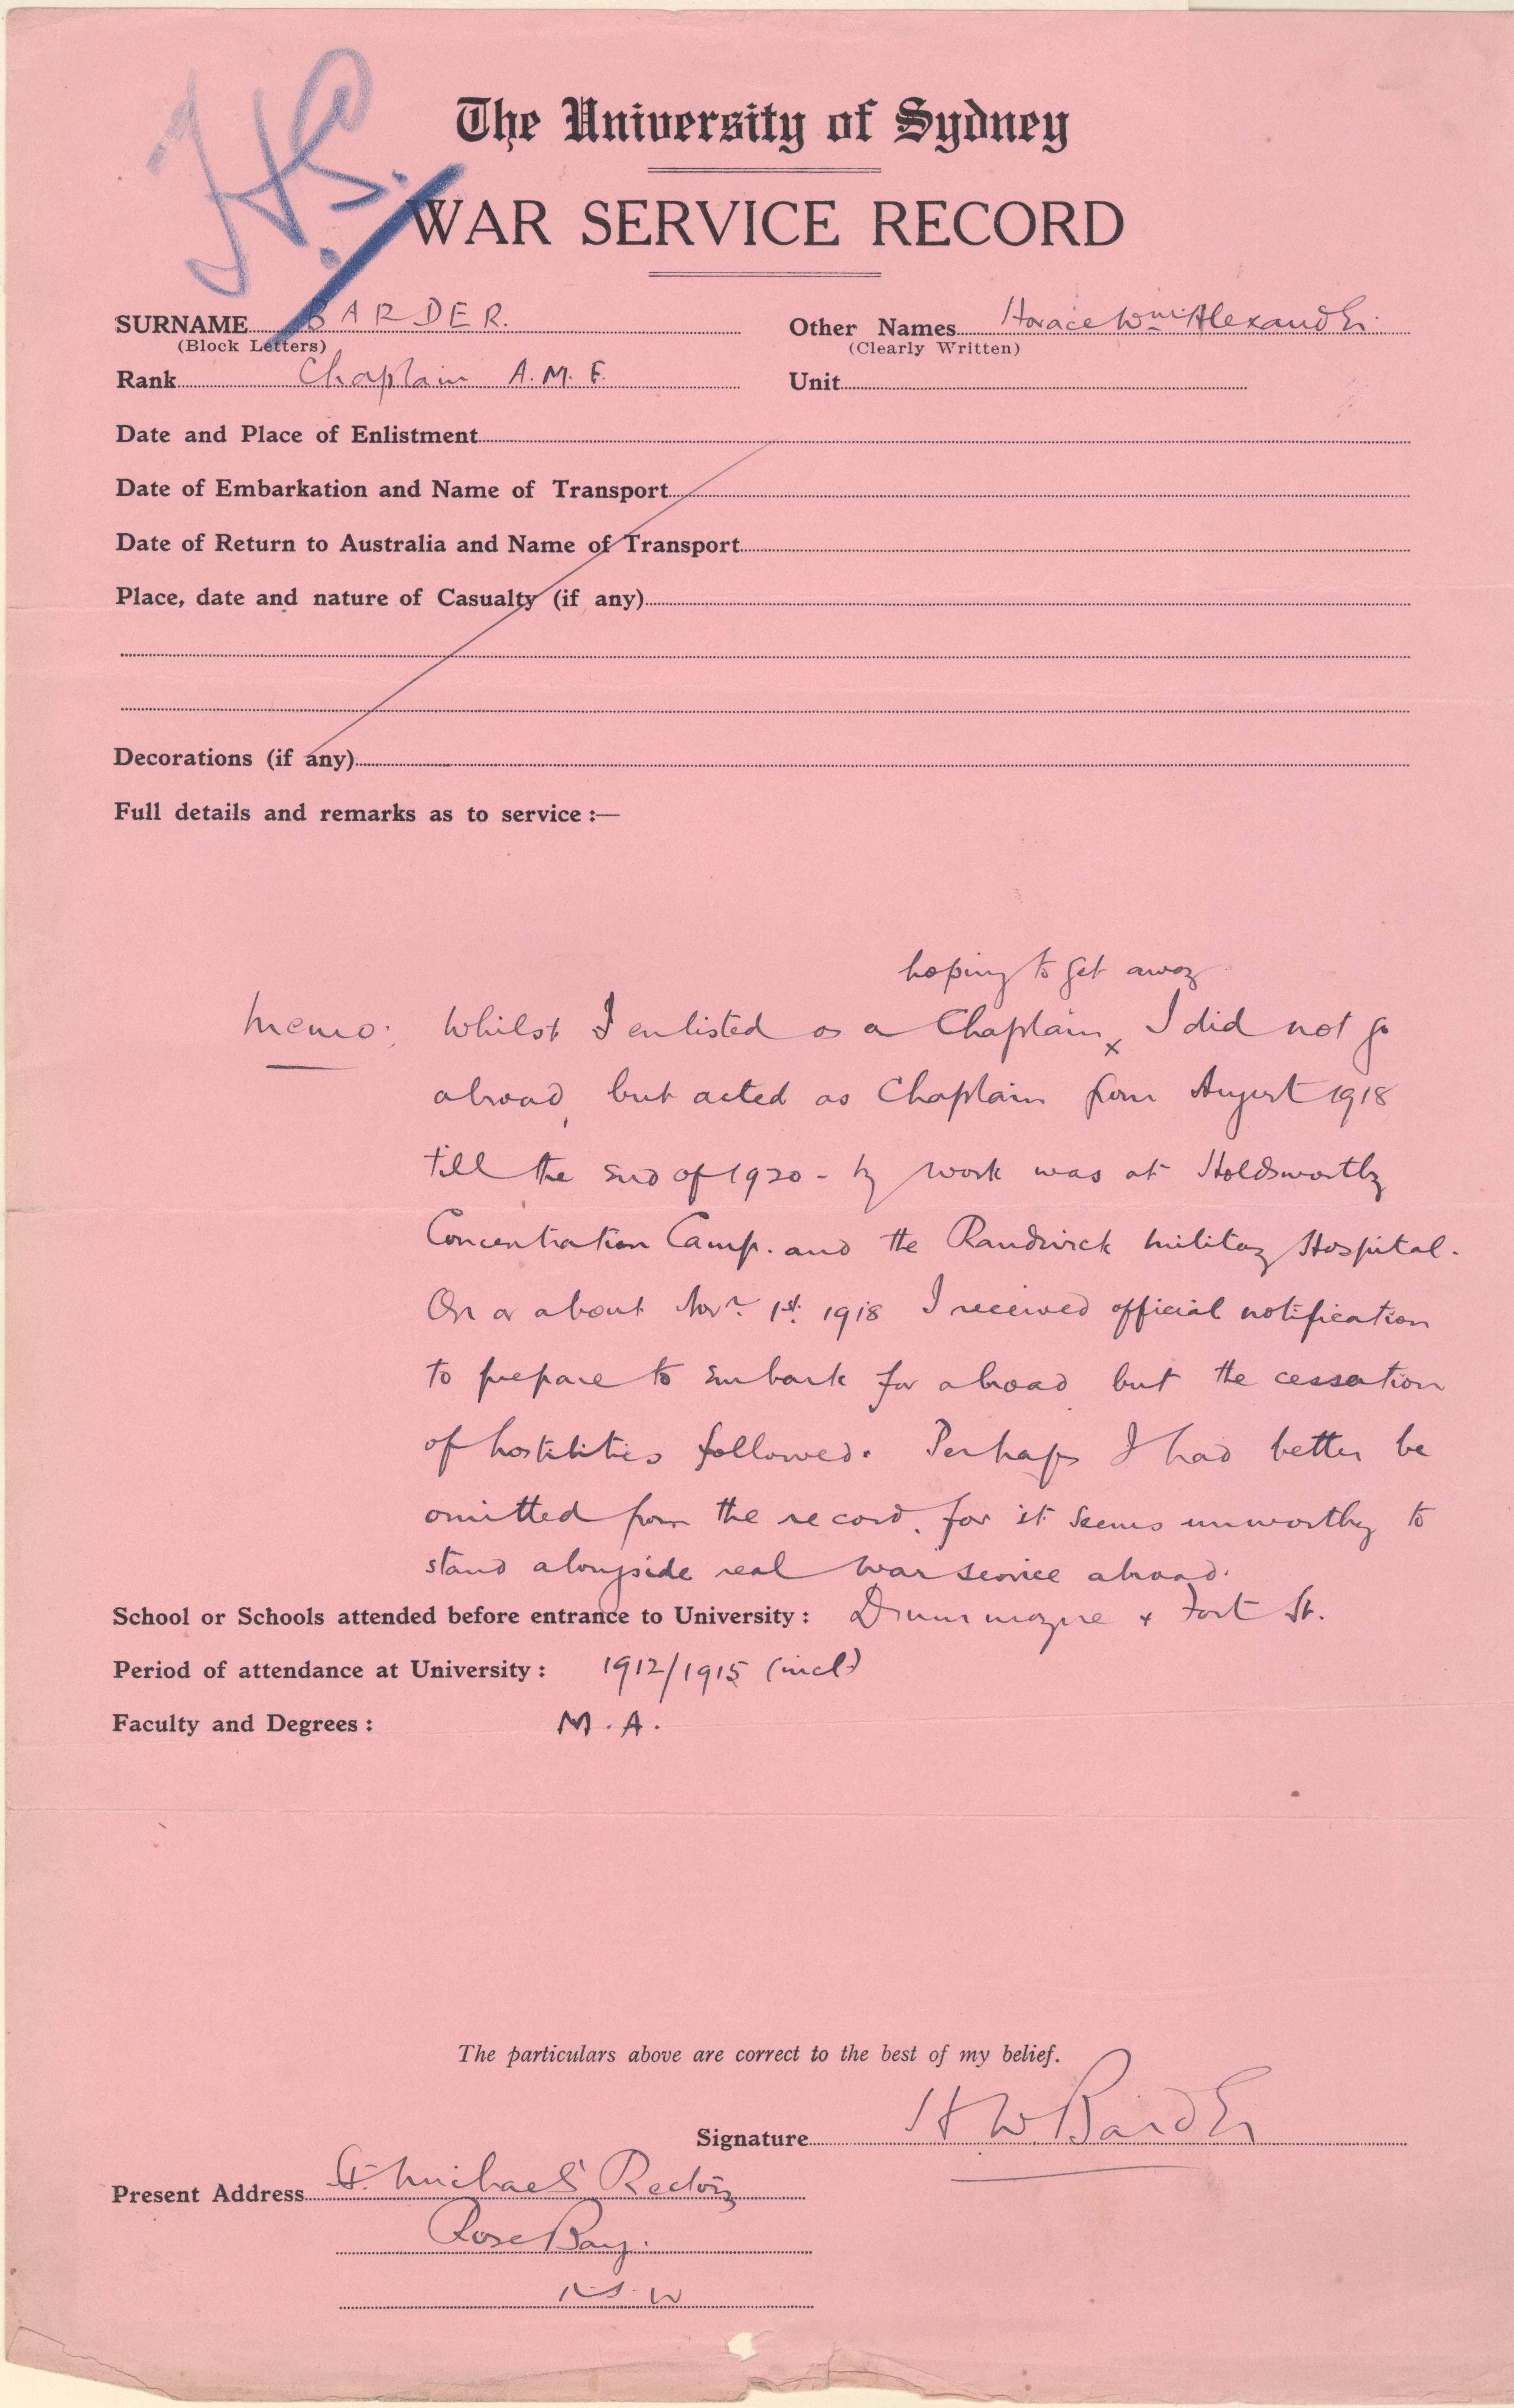 H.S.
The University of Sydney
WAR SERVICE RECORD
SURNAME BARDER. Other Names Horace Wm Alexander.
(Block Letters) (Clearly Written)
Rank Chaplain A.M.F. Unit
Date and Place of Enlistment
Date of Embarkation and Name of Transport
Date of Return to Australia and Name of Transport
Place, date and nature of Casualty (if any)
Decorations (if any)
Full details and remarks as to service :—
hoping to get away
Memo: Whilst I enlisted as a Chaplain x I did not go
abroad, but acted as Chaplain from August 1918
till the end of 1920 - My work was at Holdsworthy
Concentration Camp. and the Randwick Military Hospital.
On or about Novr. 1st. 1918 I received official notification
to prepare to embark for abroad but the cessation
of hostilities followed. Perhaps I had better be
omitted from the record, for it seems unworthy to
stand alongside real war service abroad.
School or Schools attended before entrance to University : Drummoyne + Fort St.
Period of attendance at University : 1912/1915 (incl)
Faculty and Degrees : M.A.
The particulars above are correct to the best of my belief.
Signature H W Barder
Present Address St. Michael's Rectory
Rose Bay.
N.S.W